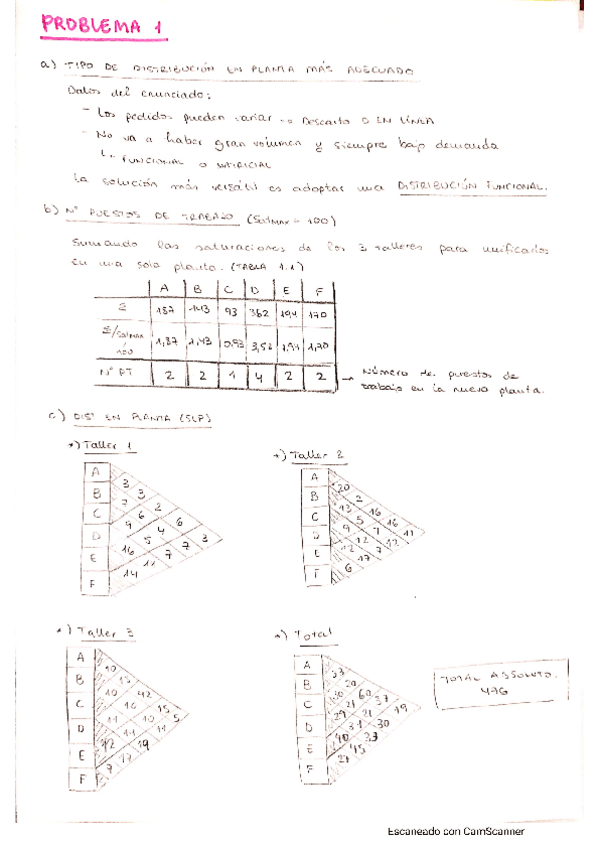 PROBLEMA 1
a) TIPO DE DISTRIBUCIÓN EN PLANTA MÁS ADECUADO
Datos del enunciado:
- Los pedidos pueden variar → Descarto D EN LÍNEA
- No va a haber gran volumen y siempre bajo demanda
↳ FUNCIONAL O
La solución más versátil es adoptar una DISTRIBUCIÓN FUNCIONAL.
b) Nº PUESTOS DE TRABAJO (Satmax = 100)
Sumando las saturaciones de los 3 talleres para unificarlos
en una sola planta. (TABLA 1.1)
A B C D E F
Σ 187 143 93 362 194 170
Σ/satmax 100 1,87 1,43 0.93 1,94 1,70
Nº PT 2 2 1 4 2 2 → Número de puestos de
trabajo en la nueva planta.
c) DIST EN PLANTA (SLP)
*) Taller 1
A B C D E F
3 3 2 6 3
7 6 4 7
9 5 7
16 11
14
*) Taller 2
A B C D E F
20 2 16 16 11
13 5 1 12
9 12 7
12 17
6
*) Taller 3
A B C D E F
10 15 42 15 5
10 10 10 11
11 14 19
12 17
7
*) Total
A B C D E F
33 20 60 37 19
30 21 21 30
29 31 33
40 45
27
TOTAL ABSOLUTO.
476
Escaneado con CamScanner